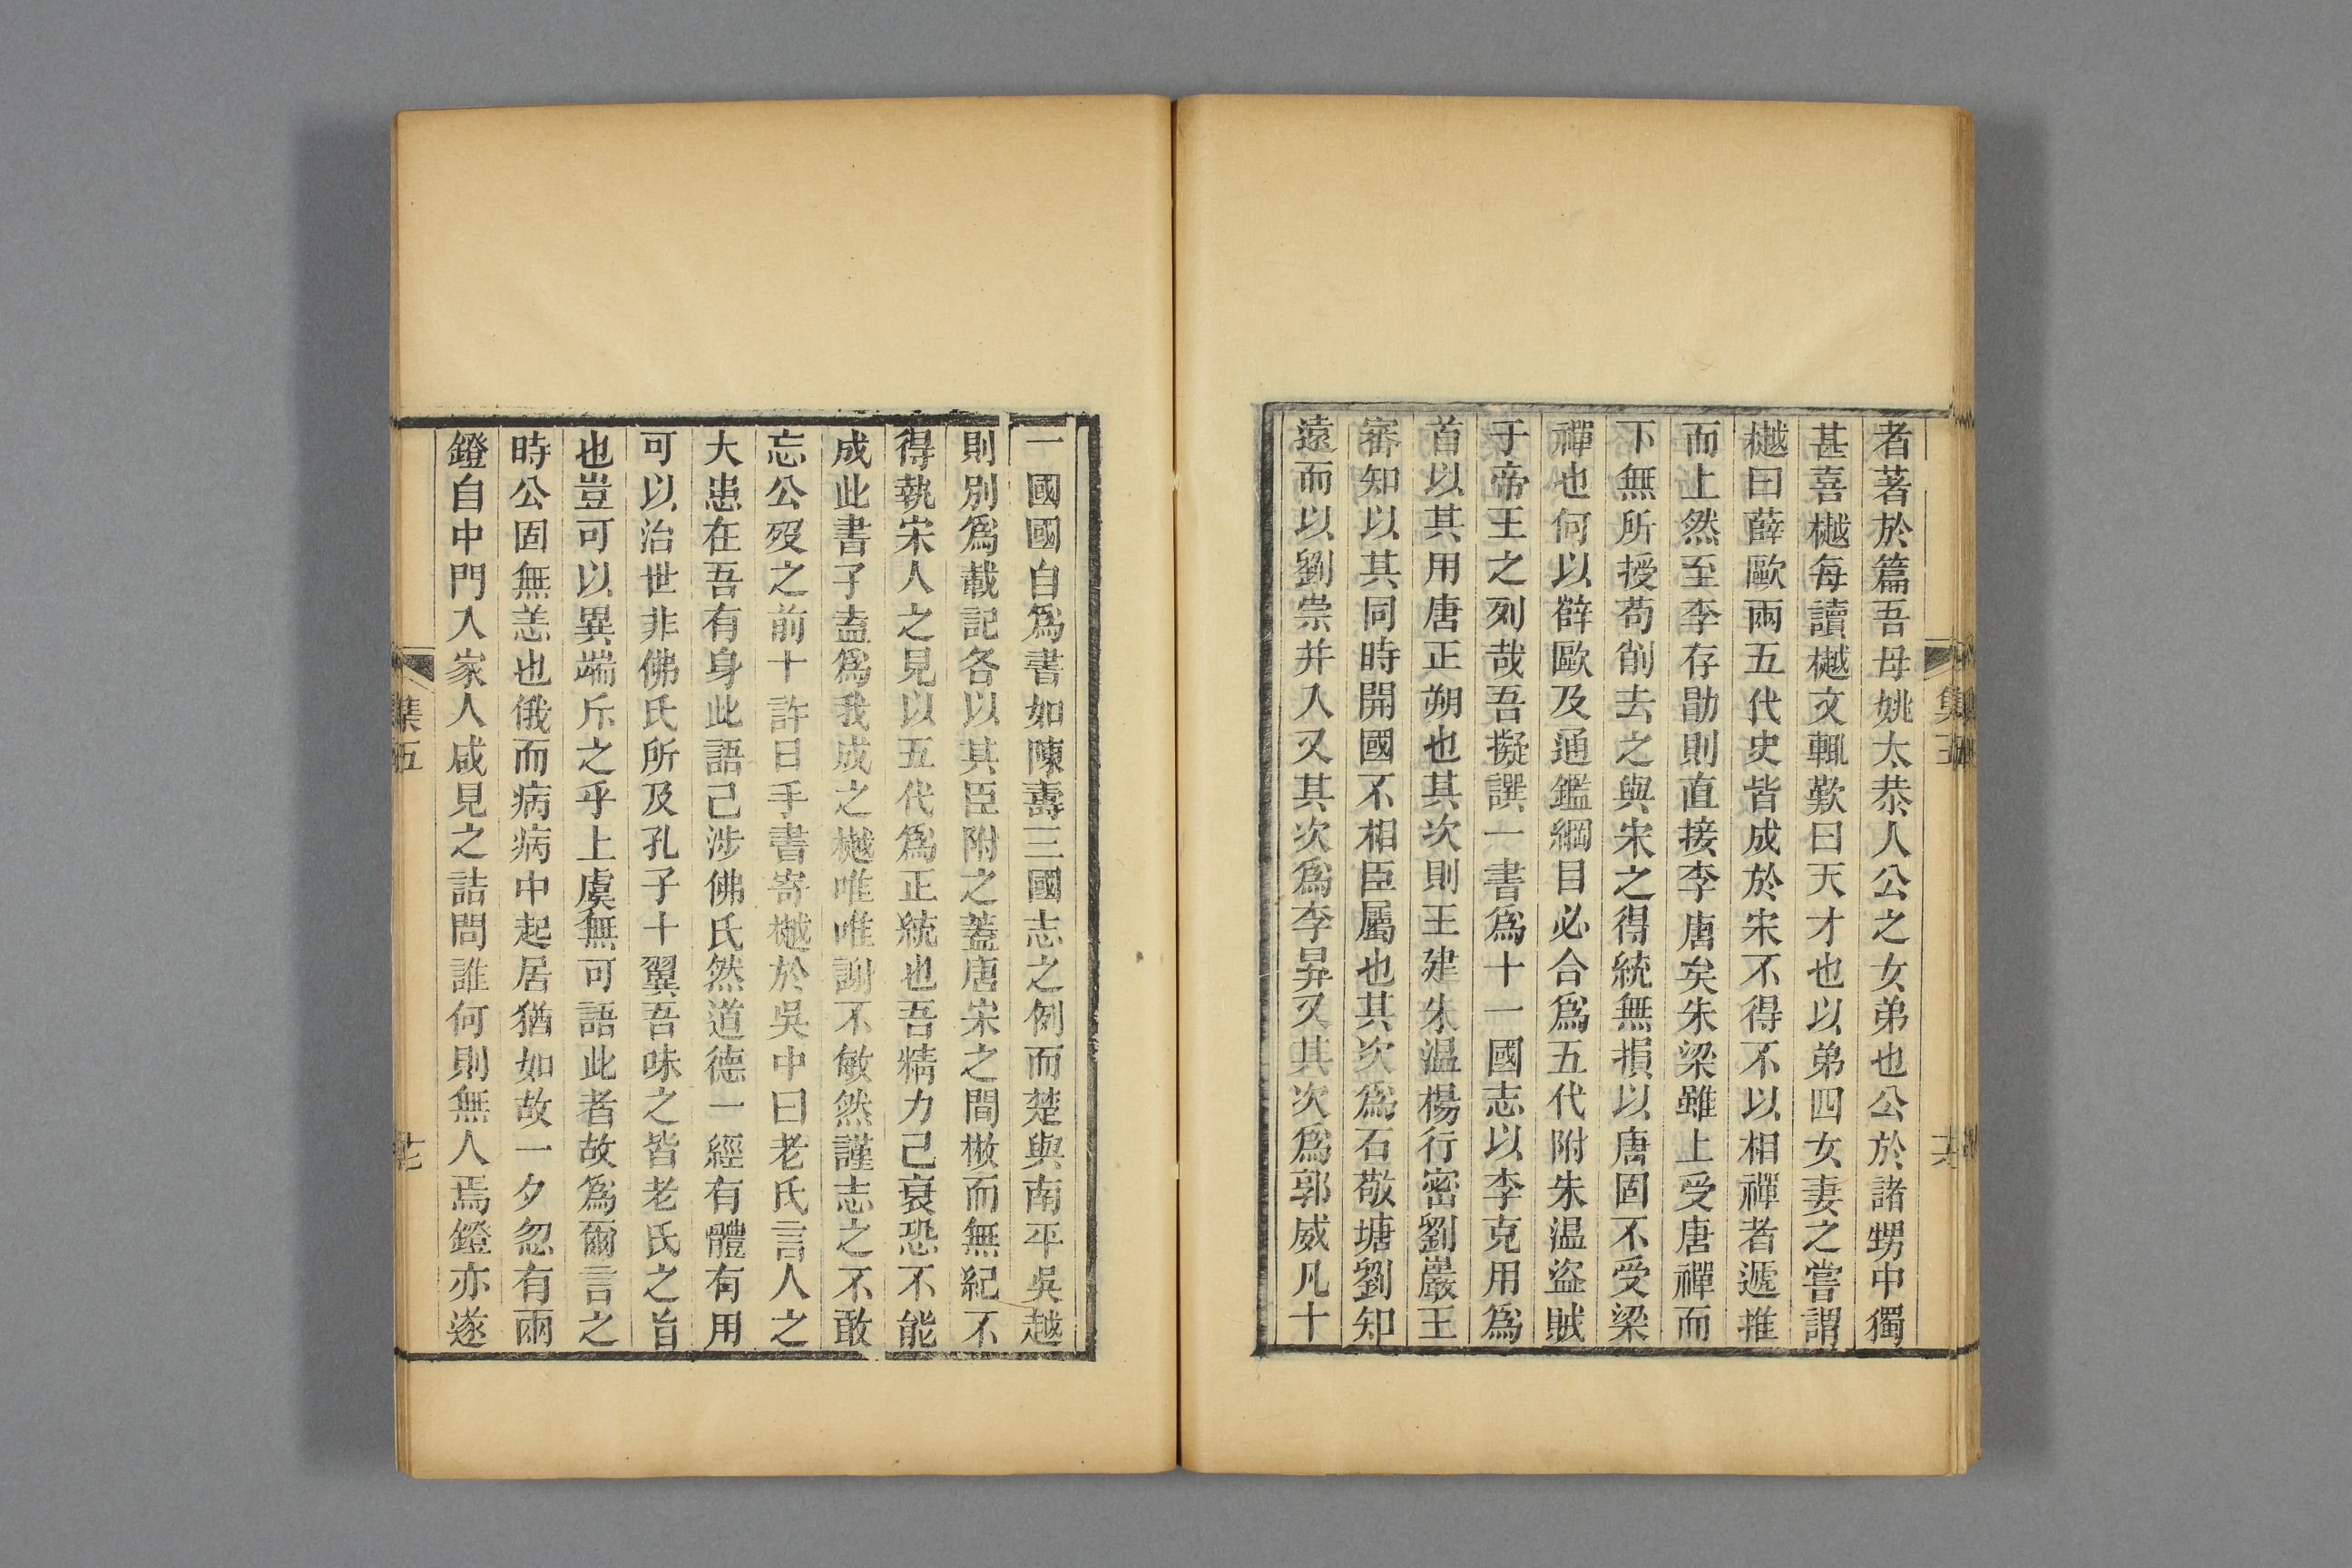 者著於篇吾母姚太恭人公之女弟也公於諸甥中獨
甚喜樾每讀樾文輒歎曰天才也以弟四女妻之嘗謂
樾曰薛歐兩五代史皆成於宋不得不以相禪者遞推
而上然至李存勖則直接李唐矣朱梁雖上受唐禪而
下無所授苟削去之與宋之得統無損以唐固不受梁
禪也何以辥歐及通鑑綱目必合爲五代附朱温盜賊
于帝王之列哉吾擬譔一書爲十一國志以李克用爲
首以其用唐正朔也其次則王建朱温楊行密劉巖王
審知以其同時開國不相臣屬也其次爲石敬塘劉知
遠而以劉崇并入又其次爲李昪又其次爲郭威凡十
一國國自爲書如陳壽三國志之例而楚與南平吳越
則別爲載記各以其臣附之蓋唐宋之間楸而無紀不
得執宋人之見以五代爲正統也吾精力已衰恐不能
成此書子盍爲我成之樾唯唯謝不敏然謹志之不敢
忘公歿之前十許日手書寄樾於吳中曰老氏言人之
大患在吾有身此語已涉佛氏然道德一經有體有用
可以治世非佛氏所及孔子十翼吾味之皆老氏之旨
也豈可以異端斥之乎上虞無可語此者故爲爾言之
時公固無恙也俄而病病中起居猶如故一夕忽有兩
鐙自中門入家人咸見之詰問誰何則無人焉鐙亦遂
集五